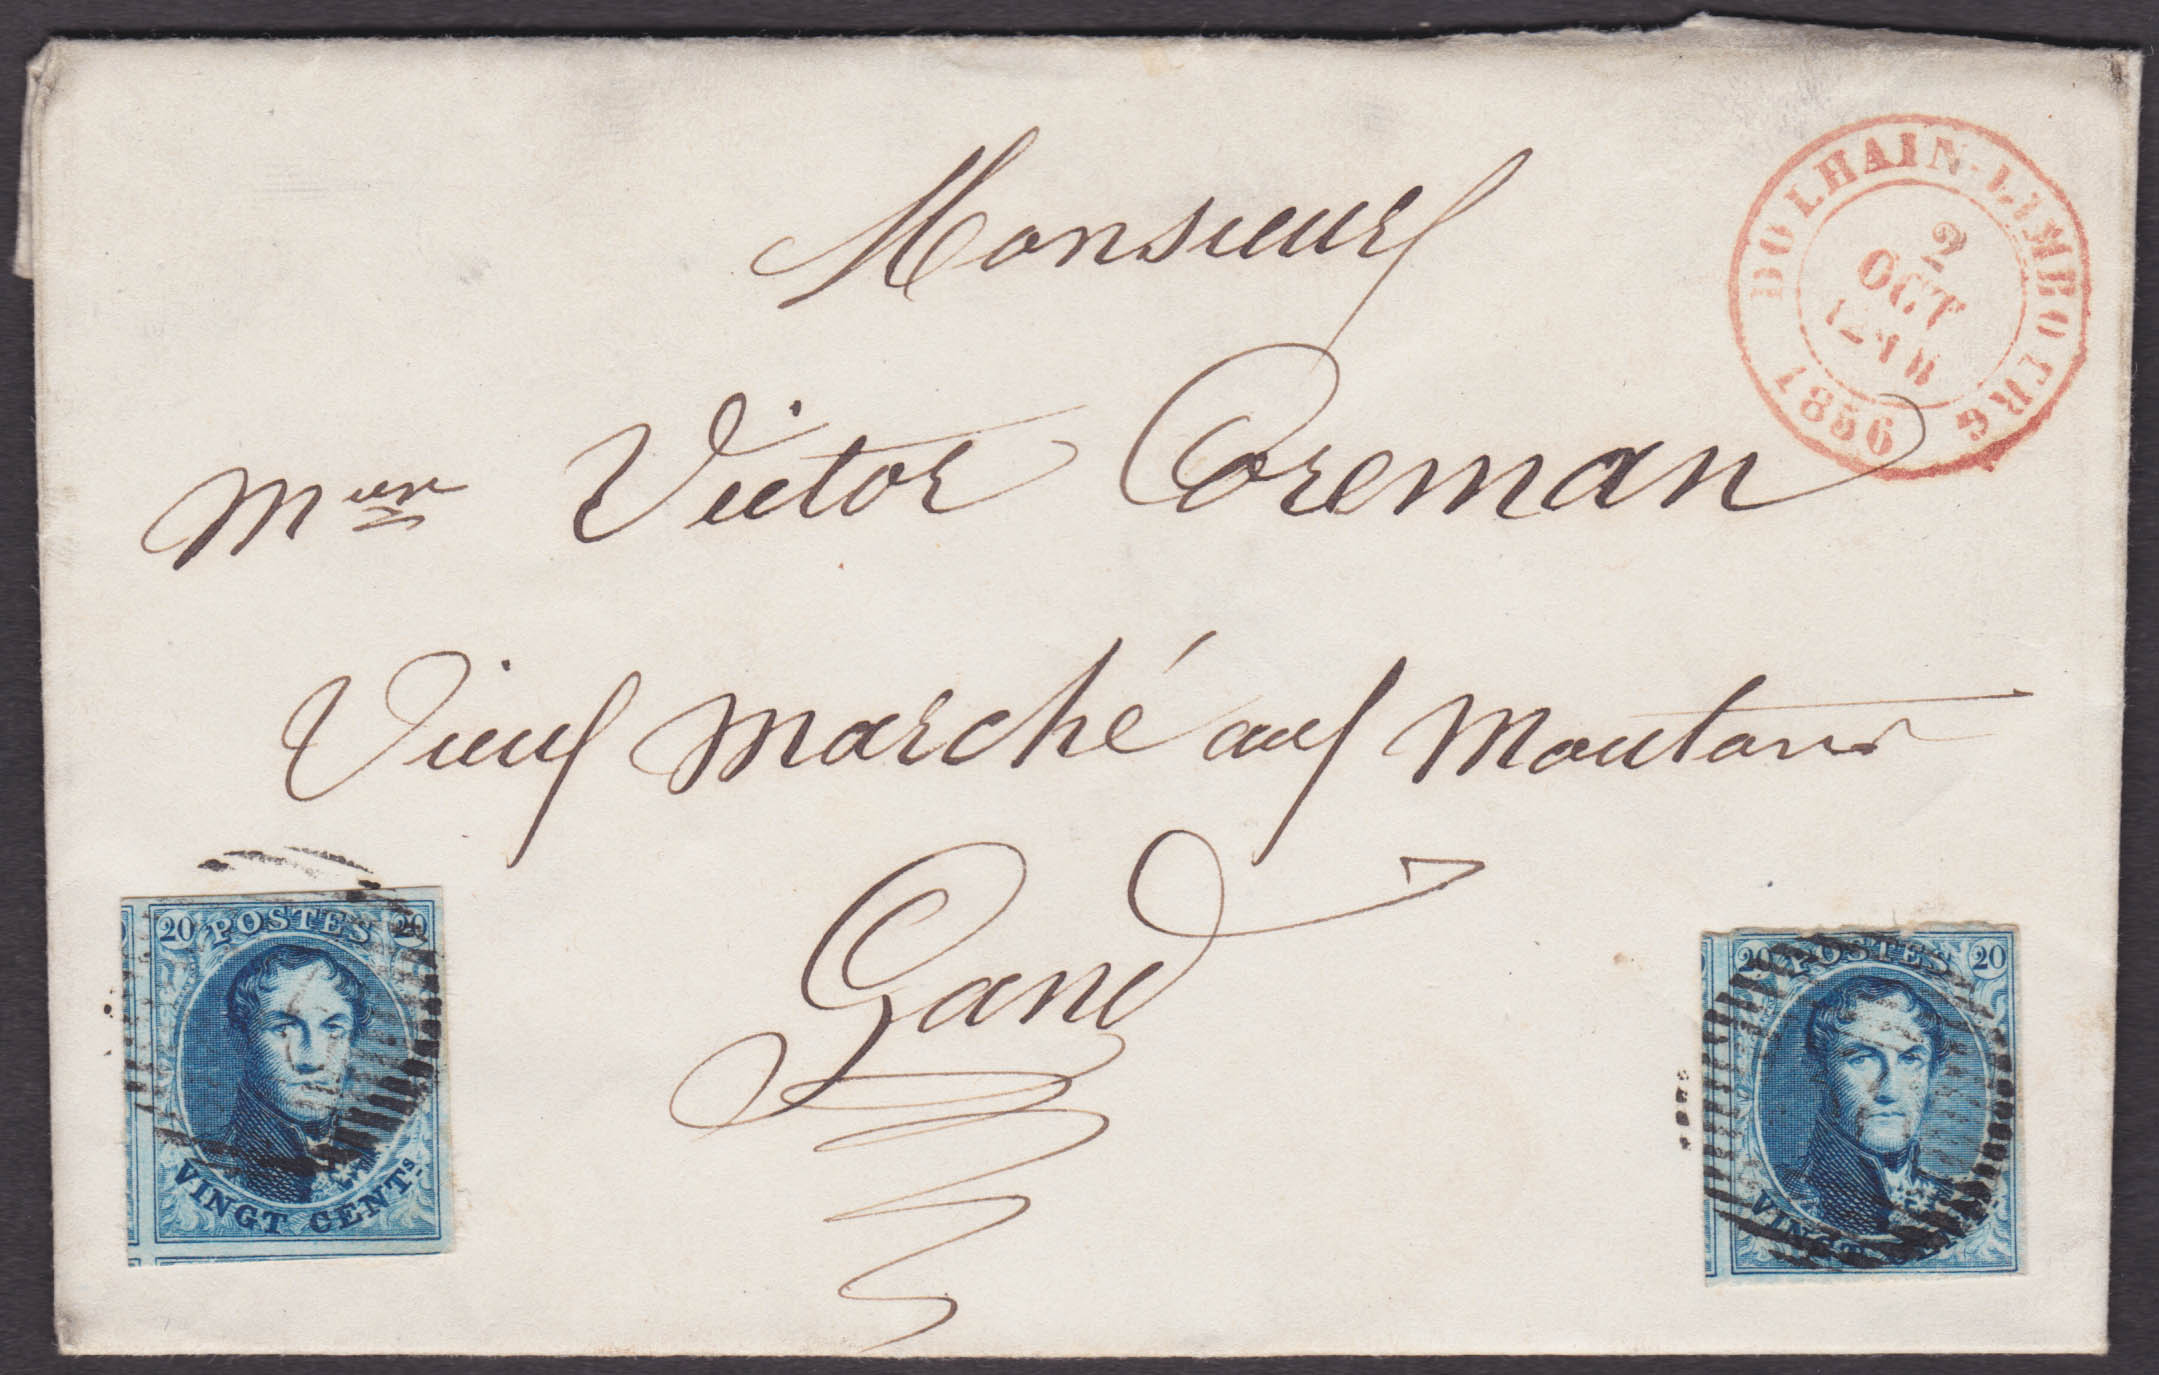 Monsieur
Victor Coreman
Vieux Marché aux Moutons
Gand
DOLHAIN-LIMBOURG
2
OCT
1856
20 POSTES 20
VINGT CENTS.
20 POSTES 20
VINGT CENTS